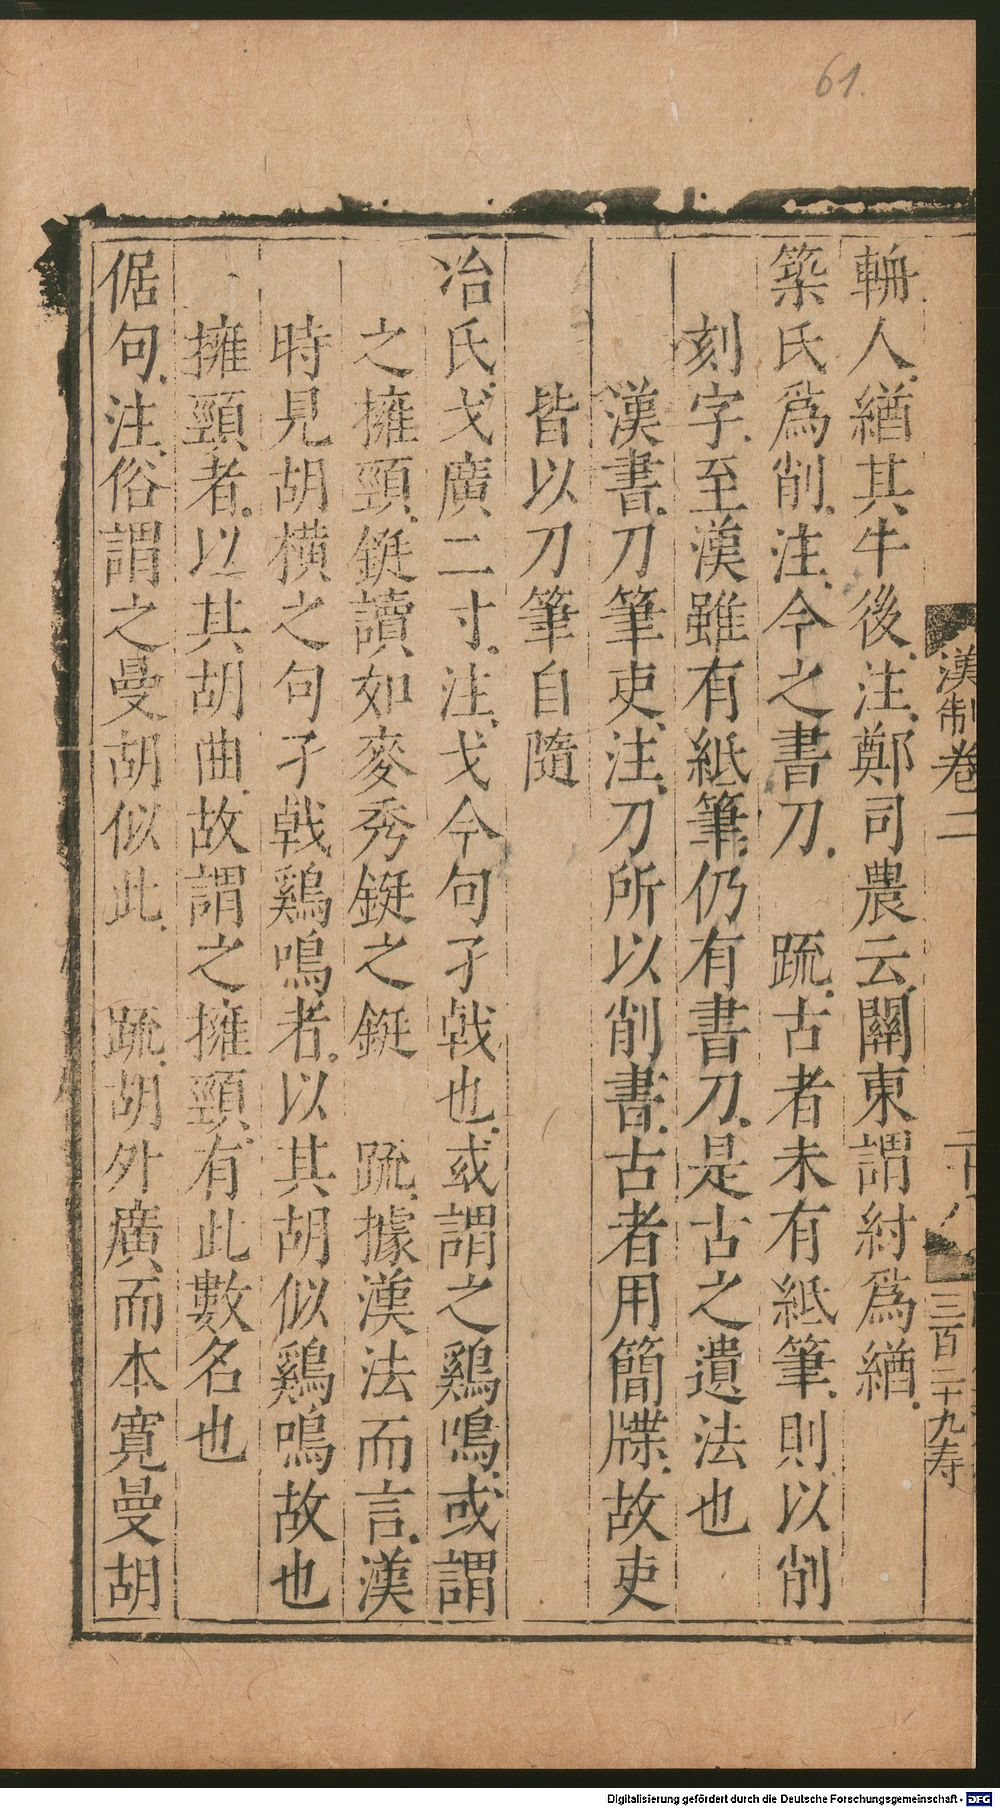 61.
漢制卷二
三百二十九寿
輈人緧其牛後注鄭司農云關東謂紂爲緧
築氏爲削注今之書刀　䟽古者未有紙筆則以削
刻字至漢雖有紙筆仍有書刀是古之遺法也
漢書刀筆吏注刀所以削書古者用簡牒故吏
皆以刀筆自隨
冶氏戈廣二寸注戈今句孑戟也或謂之鷄鳴或謂
之擁頸鋌讀如麥秀鋌之鋌　䟽據漢法而言漢
時見胡橫之句孑戟鷄鳴者以其胡似鷄鳴故也
擁頸者以其胡曲故謂之擁頸有此數名也
倨句注俗謂之曼胡似此　䟽胡外廣而本寬曼胡
Digitalisierung gefördert durch die Deutsche Forschungsgemeinschaft - DFG